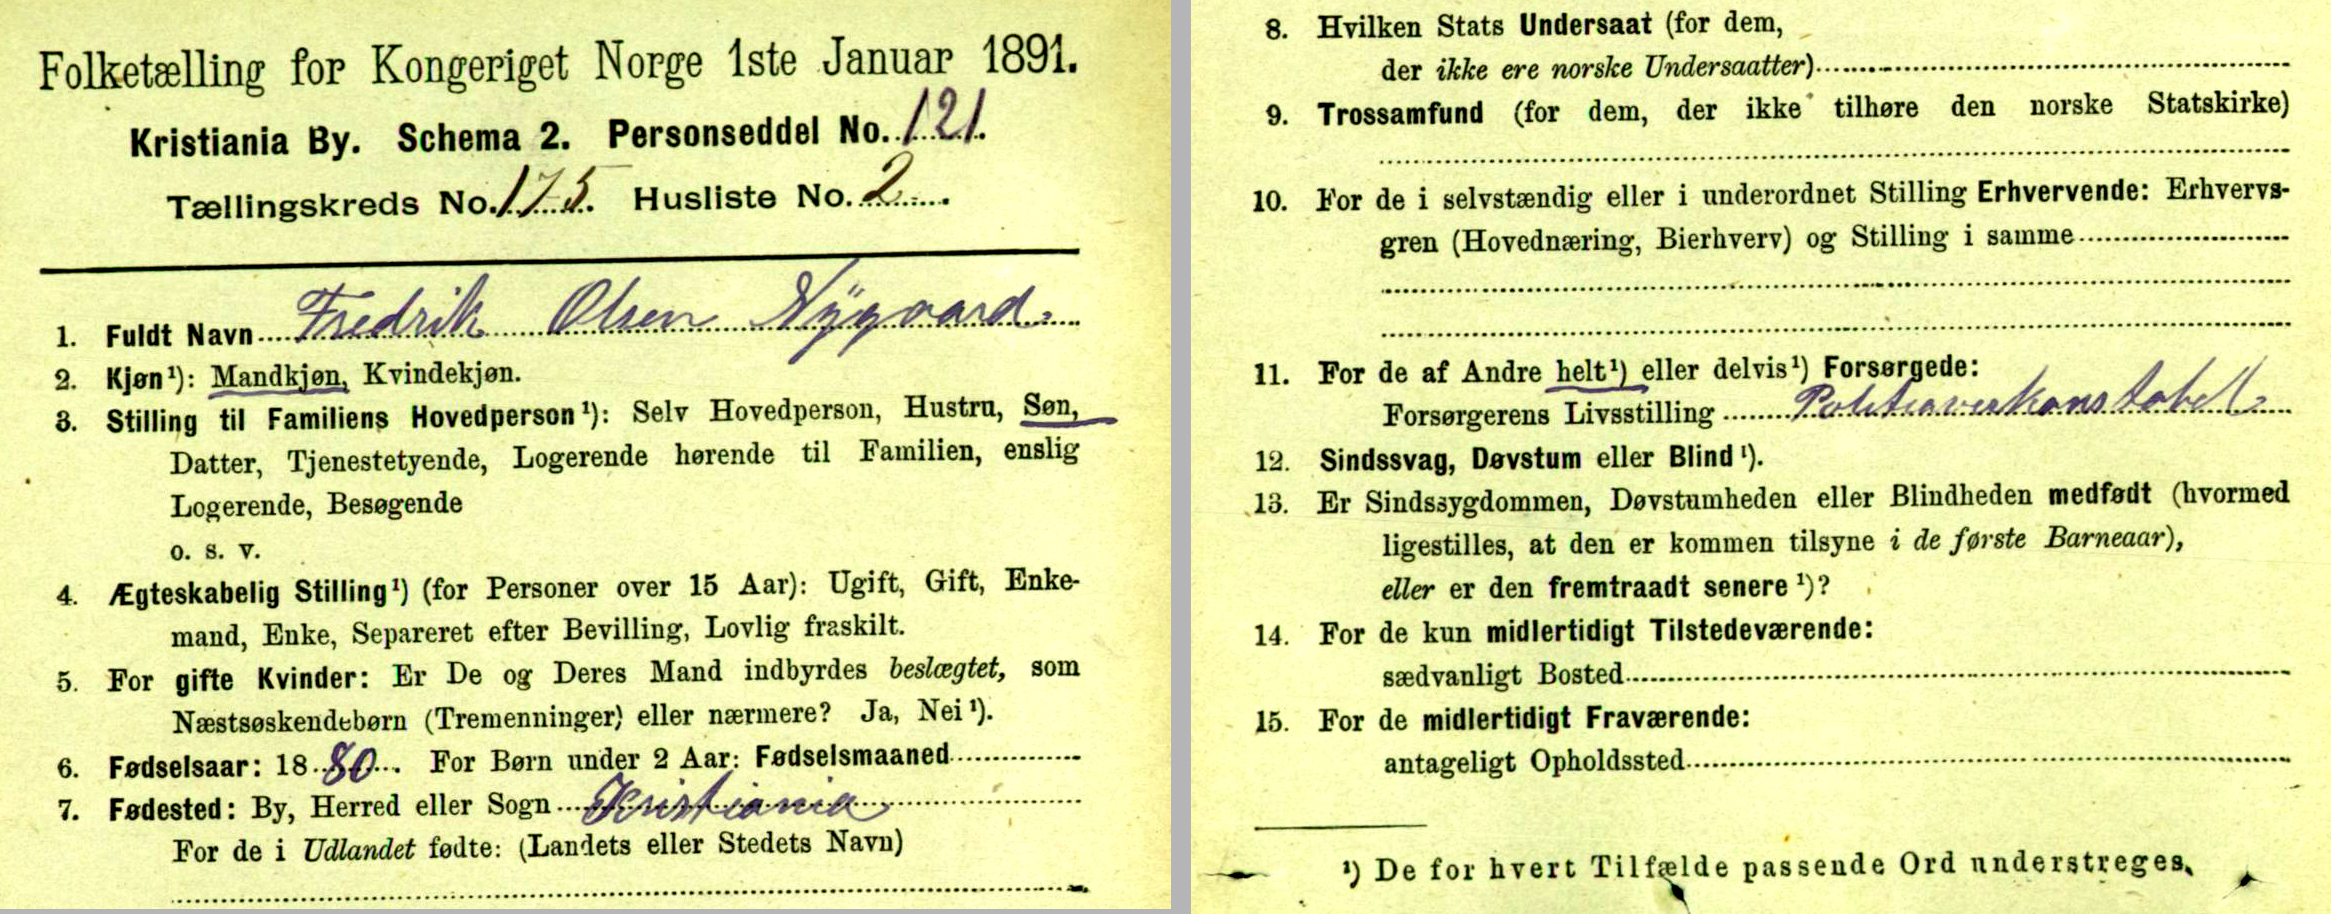 Folketælling for Kongeriget Norge 1ste Januar 1891.
Kristiania By. Schema 2. Personseddel No. 121.
Tællingskreds No. 175. Husliste No. 2.
1. Fuldt Navn Fredrik Olsen Nÿgaard.
2. Kjøn¹): Mandkjøn, Kvindekjøn.
3. Stilling til Familiens Hovedperson¹): Selv Hovedperson, Hustru, Søn,
Datter, Tjenestetyende, Logerende hørende til Familien, enslig
Logerende, Besøgende
o. s. v.
4. Ægteskabelig Stilling¹) (for Personer over 15 Aar): Ugift, Gift, Enke-
mand, Enke, Separeret efter Bevilling, Lovlig fraskilt.
5. For gifte Kvinder: Er De og Deres Mand indbyrdes beslægtet, som
Næstsøskendebørn (Tremenninger) eller nærmere? Ja, Nei¹).
6. Fødselsaar: 1880. For Børn under 2 Aar: Fødselsmaaned
7. Fødested: By, Herred eller Sogn Kristiania
For de i Udlandet fødte: (Landets eller Stedets Navn)
8. Hvilken Stats Undersaat (for dem,
der ikke ere norske Undersaatter)
9. Trossamfund (for dem, der ikke tilhøre den norske Statskirke)
10. For de i selvstændig eller i underordnet Stilling Erhvervende: Erhvervs-
gren (Hovednæring, Bierhverv) og Stilling i samme
11. For de af Andre helt¹) eller delvis¹) Forsørgede:
Forsørgerens Livsstilling Politioverkonstabel
12. Sindssvag, Døvstum eller Blind¹).
13. Er Sindssygdommen, Døvstumheden eller Blindheden medfødt (hvormed
ligestilles, at den er kommen tilsyne i de første Barneaar),
eller er den fremtraadt senere¹)?
14. For de kun midlertidigt Tilstedeværende:
sædvanligt Bosted
15. For de midlertidigt Fraværende:
antageligt Opholdssted
¹) De for hvert Tilfælde passende Ord understreges.